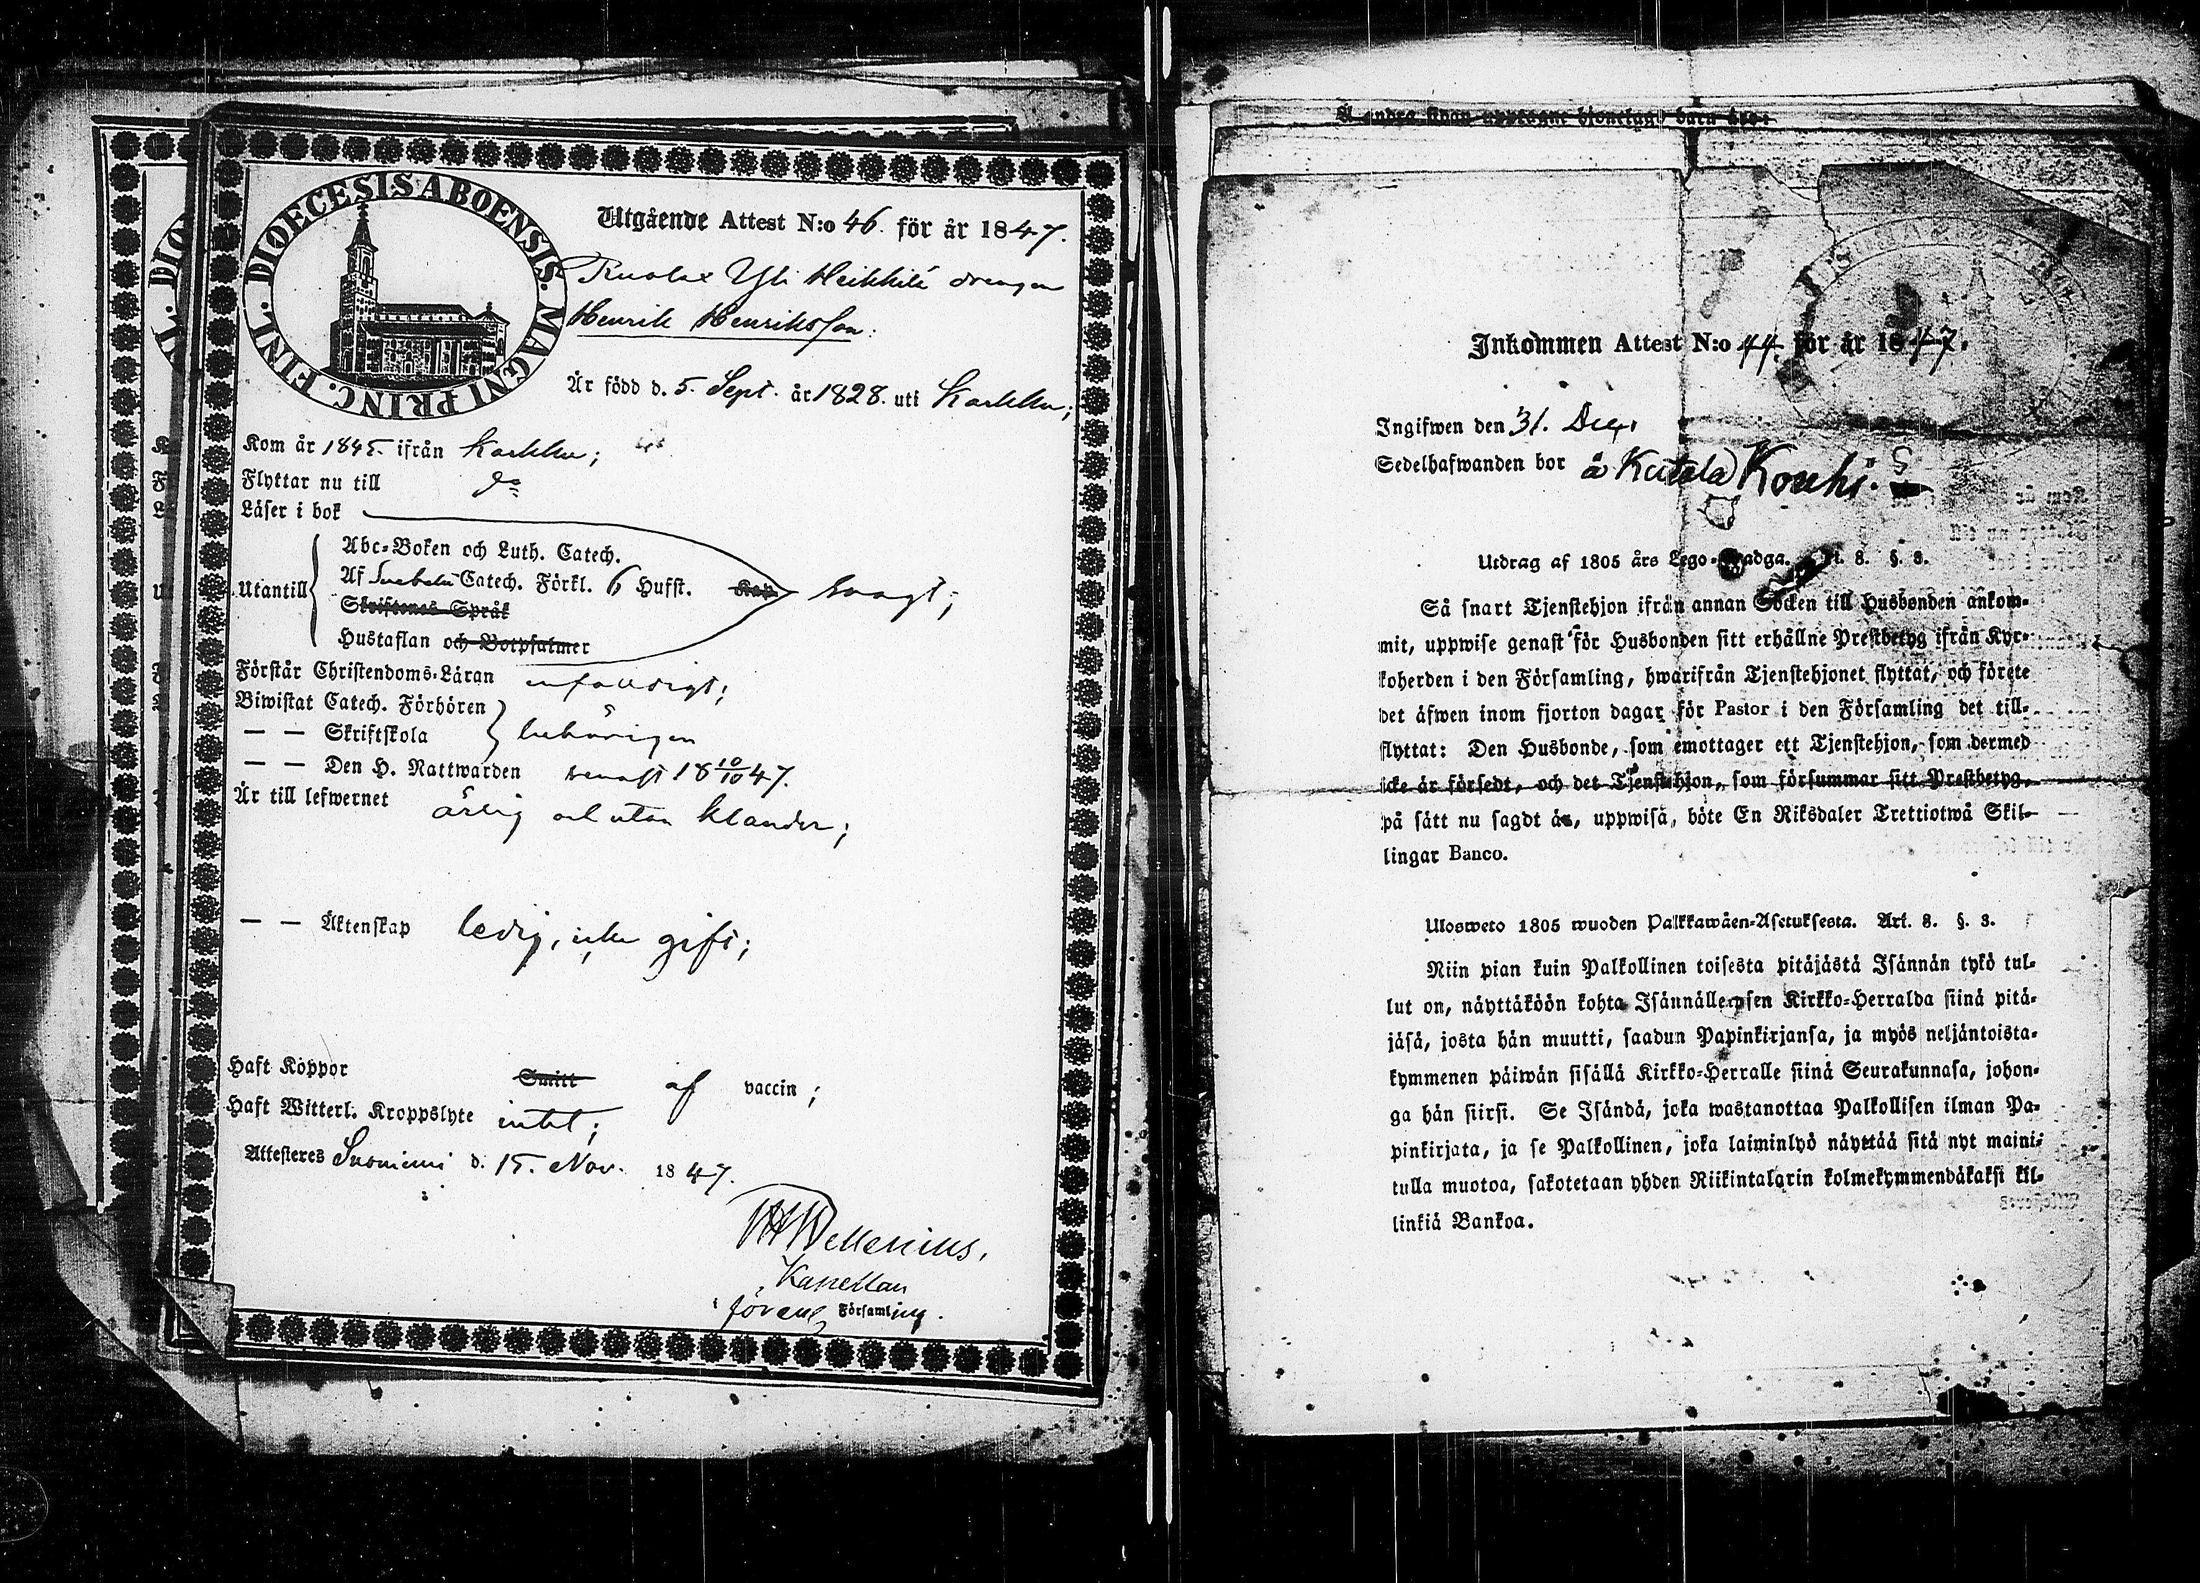 DIOECESIS ABOENSIS. MAGNI PRINC. FINL.
Utgående Attest N:o 46. för år 1847.
Yli Heikkilä drengen
Henrik Henriksson.
Är född d. 5. Sept. år 1828. uti Karkku;
Kom år 1845. ifrån Karkku;
Flyttar nu till do
Läser i bok
Abc-Boken och Luth. Catech.
Utantill Af Svebelii Catech. Förkl. 6 Hufst. Kap. svagt;
Skriftenes Språk
Hustaflan och Botpsalmer
Förstår Christendoms-Läran enfaldigt;
Biwistat Catech. Förhören
— — Skriftskola behörigen
— — Den H. Nattwarden senast 18 10/10 47.
Är till lefwernet ärlig och utan klander;
— — Äktenskap ledig, icke gift;
Haft Koppor Smitt af vaccin;
Haft Witterl. Kroppslyte intet;
Attesteres Suoniemi d. 15. Nov. 1847.
Wellenius,
Kapellan
Församling.
Å andra sidan upptagne barn
Inkommen Attest N:o 44. för år 1847.
Ingifwen den 31. Dec.
Sedelhafwanden bor å Kutala Kouhi.
Utdrag af 1805 års Lego-Stadga. Art. 8. §. 3.
Så snart Tjenstehjon ifrån annan Socken till Husbonden ankom-
mit, uppwise genast för Husbonden sitt erhållne Prestbetyg ifrån Kyr-
koherden i den Församling, hwarifrån Tjenstehjonet flyttat, och förete
det äfwen inom fjorton dagar för Pastor i den Församling det till-
flyttat: Den Husbonde, som emottager ett Tjenstehjon, som dermed
icke är försedt, och det Tjenstehjon, som försummar sitt Prestbetyg,
på sätt nu sagdt är, uppwisa, böte En Riksdaler Trettiotwå Skil-
lingar Banco.
Ulosweto 1805 wuoden Palkkawäen-Asetuksesta. Art. 8. §. 3.
Niin pian kuin Palkollinen toisesta pitäjästä Isännän tykö tul-
lut on, näyttäköön kohta Isännällensen Kirkko-Herralda siinä pitä-
jäsä, josta hän muutti, saadun Papinkirjansa, ja myös neljäntoista-
kymmenen päiwän sisällä Kirkko-Herralle siinä Seurakunnasa, johon-
ga hän siirsi. Se Isändä, joka wastanottaa Palkollisen ilman Pa-
pinkirjata, ja se Palkollinen, joka laiminlyö näyttää sitä nyt maini-
tulla muotoa, sakotetaan yhden Riikintalarin kolmekymmendäkaksi kil-
linkiä Bankoa.